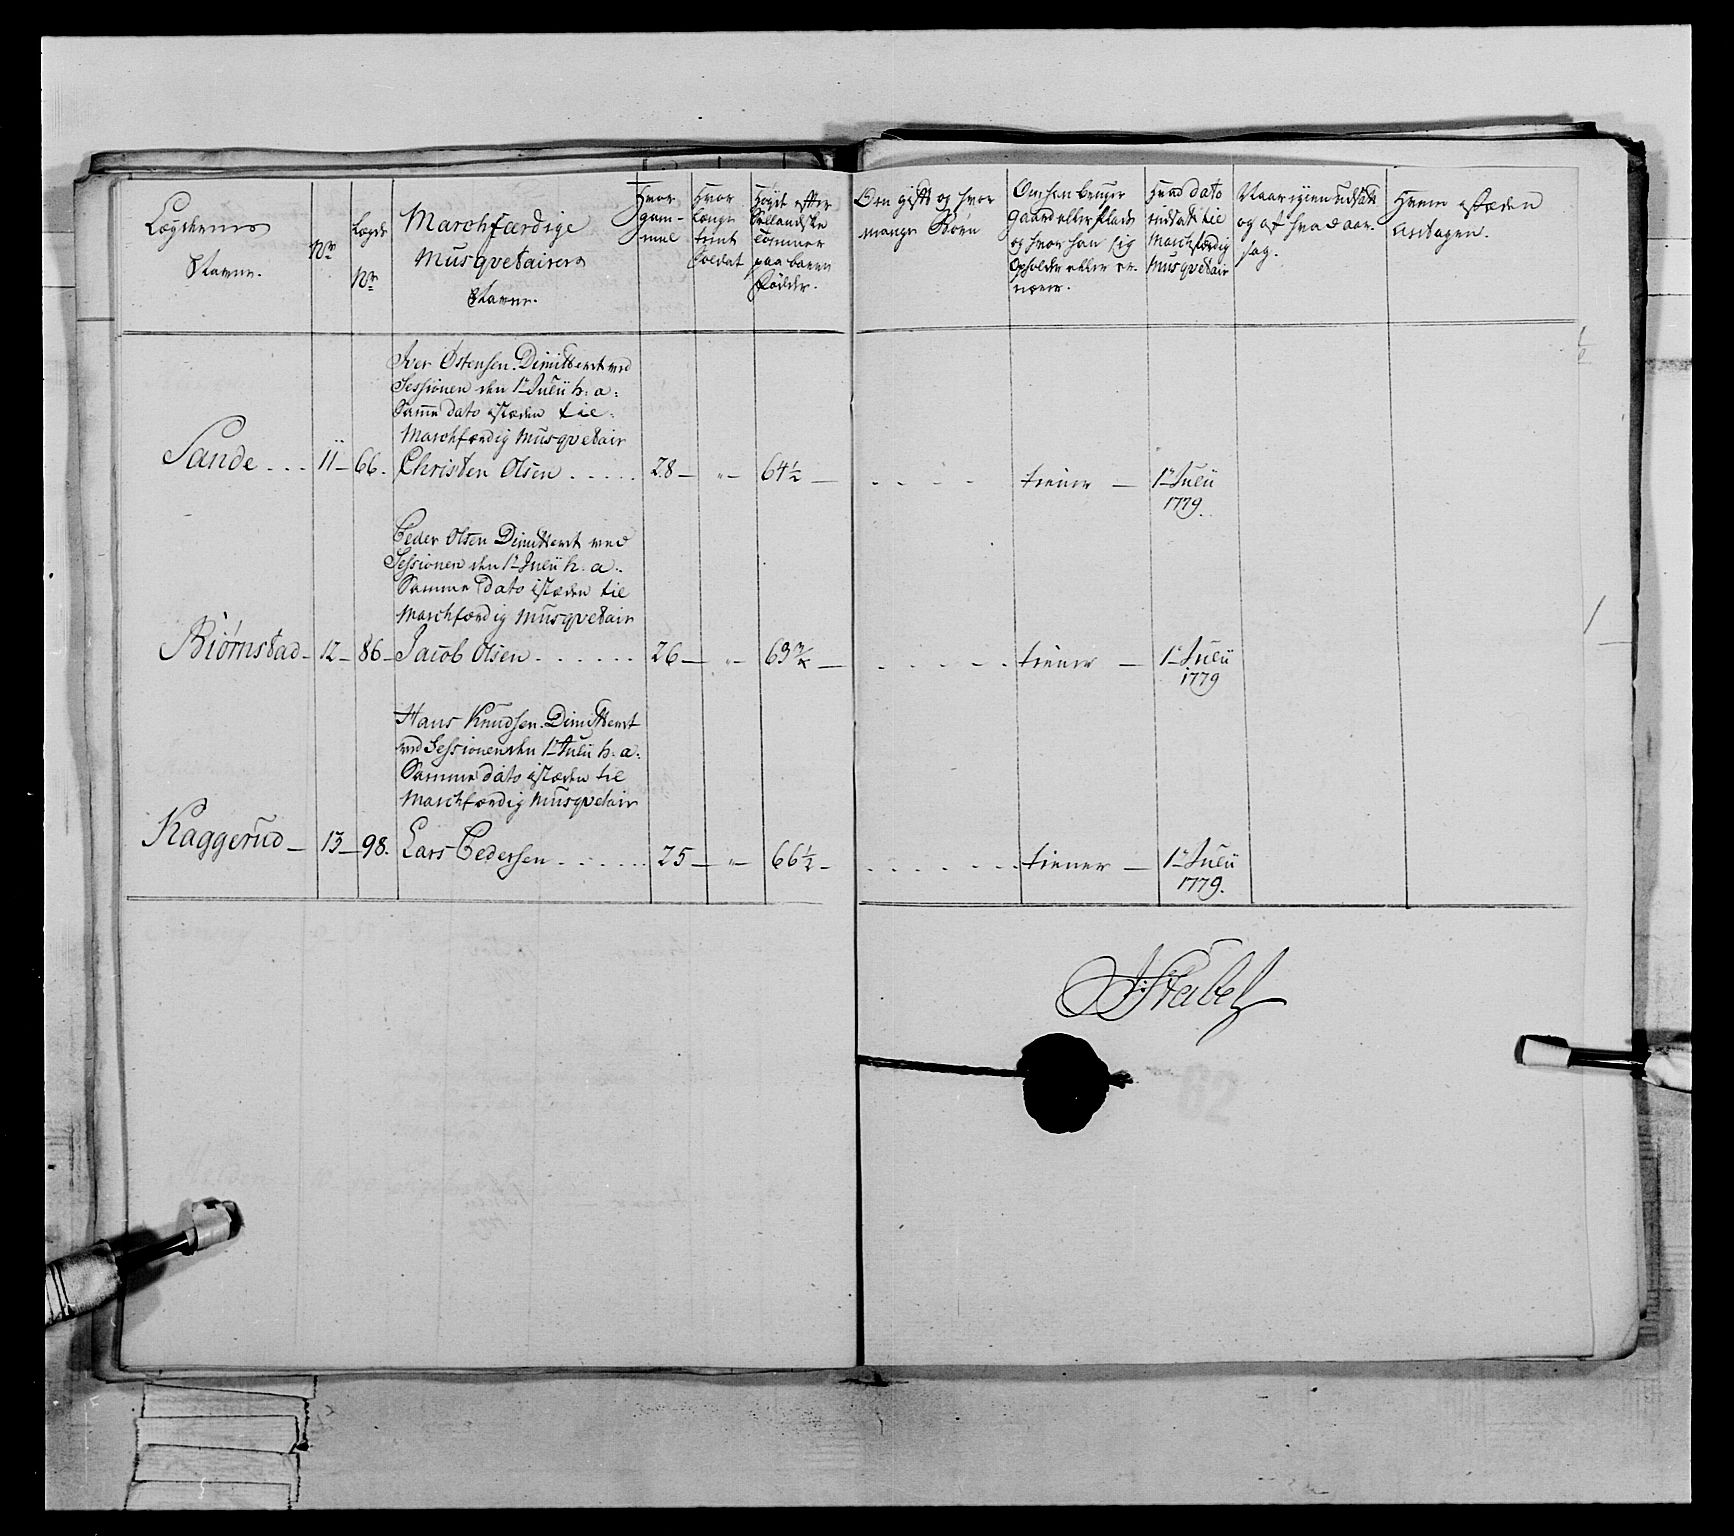 Lægdernes
Navne.
No
Lægds
No
Marchfærdige
Musqvetairers
Navne.
Hvor
gam-
mel
Hvor
længe
tient
Soldat
Høyde efter
Siellandske
Tommer
paa bare
Fødder.
Om gift og hvor
mange Børn
Om han bruger
gaard eller Plads
og hvor han sig
opholder eller er-
nærer.
Hvad dato
indsatt til
Marchfærdig
Musqvetair
Naar igien udsatt
og af hvad aar-
sag.
Hvem istæden
Antagen.
Iver Østensen. Dimitteret ved
Sessionen den 1te Julii h: a:
Samme dato istæden til
Marchfærdig Musqvetair
Sande . . . 11 — 66. Christen Olsen . . . . . 28 — " — 64½ — . . . . tiener — 1te Julii
1779.
Peder Olsen Dimitteret ved
Sessionen den 1te Julii h: a:
Samme dato istæden til
Marchfærdig Musqvetair
Biørnstad — 12 — 86 — Jacob Olsen . . . . . . 26 — " — 63 — . . . . . tiener — 1te Julii
1779
Hans Knudsen. Dimitteret
ved Sessionen den 1te Julii h: a:
Samme dato istæden til
Marchfærdig Musqvetair
Kaggerud — 13 — 98. Lars Pedersen . . . . . . 25 — " — 66½ — . . . . . tiener — 1te Julii
1779.
Stabel
82